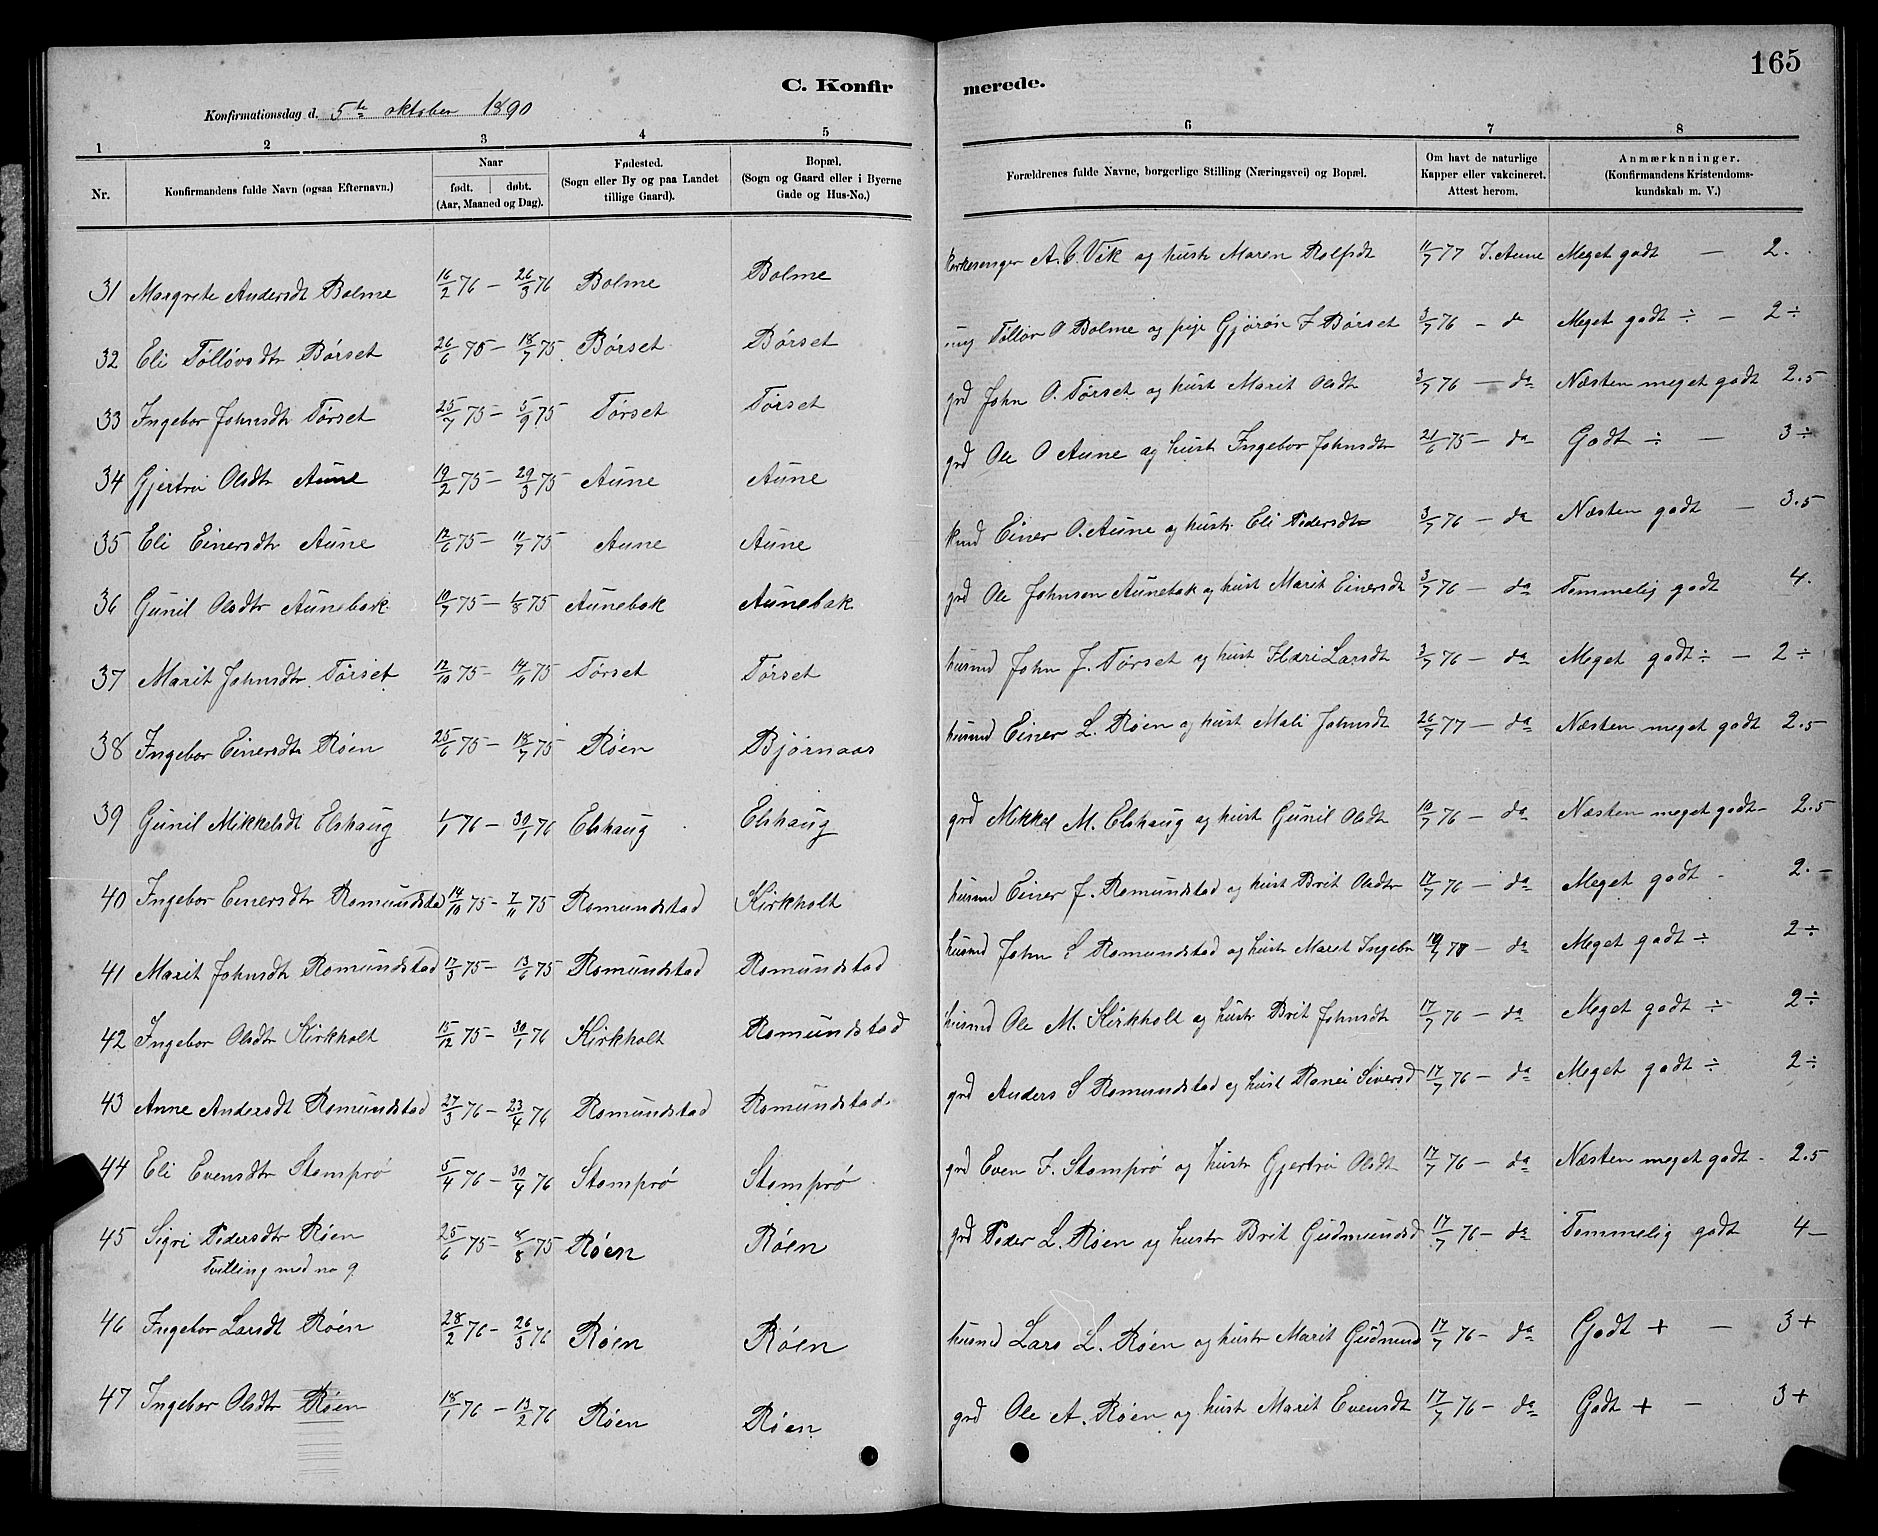 165
C. Konfirmerede.
Konfirmationsdag d. 5te oktober 1890
1 2 3 4 5 6 7 8
Nr. | Konfirmandens fulde Navn (ogsaa Efternavn.) | Naar født. døbt. (Aar, Maaned og Dag). | Fødested. (Sogn eller By og paa Landet tillige Gaard). | Bopæl. (Sogn og Gaard eller i Byerne Gade og Hus-No.) | Forældrenes fulde Navne, borgerlige Stilling (Næringsvei) og Bopæl. | Om havt de naturlige Kapper eller vakcineret. Attest herom. | Anmærkninger. (Konfirmandens Kristendomskundskab m. V.)
31 Margrete Andersdt Bolme 16/2 76 – 26/3 76 Bolme Bolme Kirkesanger A. O. Vik og hustr Maren Rolfsdt 11/7 77 J. Aune Meget godt – 2.
32 Eli Tølløvsdtr Børset 26/6 75 – 18/7 75 Børset Børset ung Tølløv O Bolme og pige Gjørøn J Børset 3/7 76 – da Meget godt ÷ – 2 ÷
33 Ingebor Johnsdtr Tørset 25/7 75 – 5/9 75 Tørset Tørset grd John O. Tørset og hust Marit Olsdt 3/7 76 – da Næsten meget godt 2.5
34 Gjertru Olsdtr Aune 19/2 75 – 29/3 75 Aune Aune grd Ole O Aune og hust Ingebor Johnsdtr 21/6 75 – da Godt ÷ – 3 ÷
35 Eli Einersdtr Aune 12/6 75 – 11/7 75 Aune Aune Einer O. Aune og hustr Eli Pedersdtr 3/7 76 – da Næsten godt – 3.5
36 Gunil Olsdtr Aunebak 10/7 75 – 1/8 75 Aunebak Aunebak grd Ole Johnsen Aunebak og hust Marit Einersdt 3/7 76 – da Temmelig godt 4.
37 Marit Johnsdtr Tørset 12/10 75 – 14/11 75 Tørset Tørset husmd John J. Tørset og hust Kari Larsdt 3/7 76 – da Meget godt ÷ – 2 ÷
38 Ingebor Einersdtr Røen 25/6 75 – 18/7 75 Røen Bjørnaas husmd Einer L. Røen og hust Mali Johnsdt 26/7 77 – da Næsten meget godt 2.5
39 Gunil Mikkelsdt Elshaug 1/1 76 – 30/1 76 Elshaug Elshaug grd Mikkel M. Elshaug og hust Gunil Olsdt 10/7 76 – da Næsten meget godt – 2.5
40 Ingebor Einersdtr Romundstad 14/10 75 – 7/11 75 Romundstad Kirkholt husmd Einer J. Romundstad og hust Brit Olsdtr 17/7 76 – da Meget godt – 2. –
41 Marit Johnsdt Romundstad 17/3 75 – 13/6 75 Romundstad Romundstad husmd John E Romundstad og hustr Maret Ingebr da Meget godt ÷ 2 ÷
42 Ingebor Olsdtr Kirkholt 15/12 75 – 30/1 76 Kirkholt Romundstad husmd Ole M. Kirkholt og hustr Brit Johnsdt 17/7 76 – da Meget godt ÷ 2 ÷
43 Anne Andersdt Romundstad 27/3 76 – 23/4 76 Romundstad Romundstad. grd Anders S Romundstad og hust Ranei Siversd 17/7 76 – da Meget godt ÷ 2 ÷
44 Eli Evensdtr Stomprø 5/4 76 – 30/4 76 Stomprø Stomprø grd Even F. Stomprø og hustr Gjertru Olsdt 17/7 76 – da Næsten meget godt – 2.5
45 Sigri Pedersdtr Røen 25/6 75 – 8/8 75 Røen Røen grd Peder L. Røen og hustr Brit Gudmundsd 17/7 76 – da Temmelig godt 4 –
Tvilling med no 9
46 Ingebor Larsdt Røen 28/2 76 – 26/3 76 Røen Røen husmd Lars L. Røen og hustr Marit Gudmund 17/7 76 – da Godt + – 3 +
47 Ingebor Olsdtr Røen 18/1 76 – 13/2 76 Røen Røen grd Ole A. Røen og hust Marit Evensdt 17/7 76 – da Godt + – 3 +